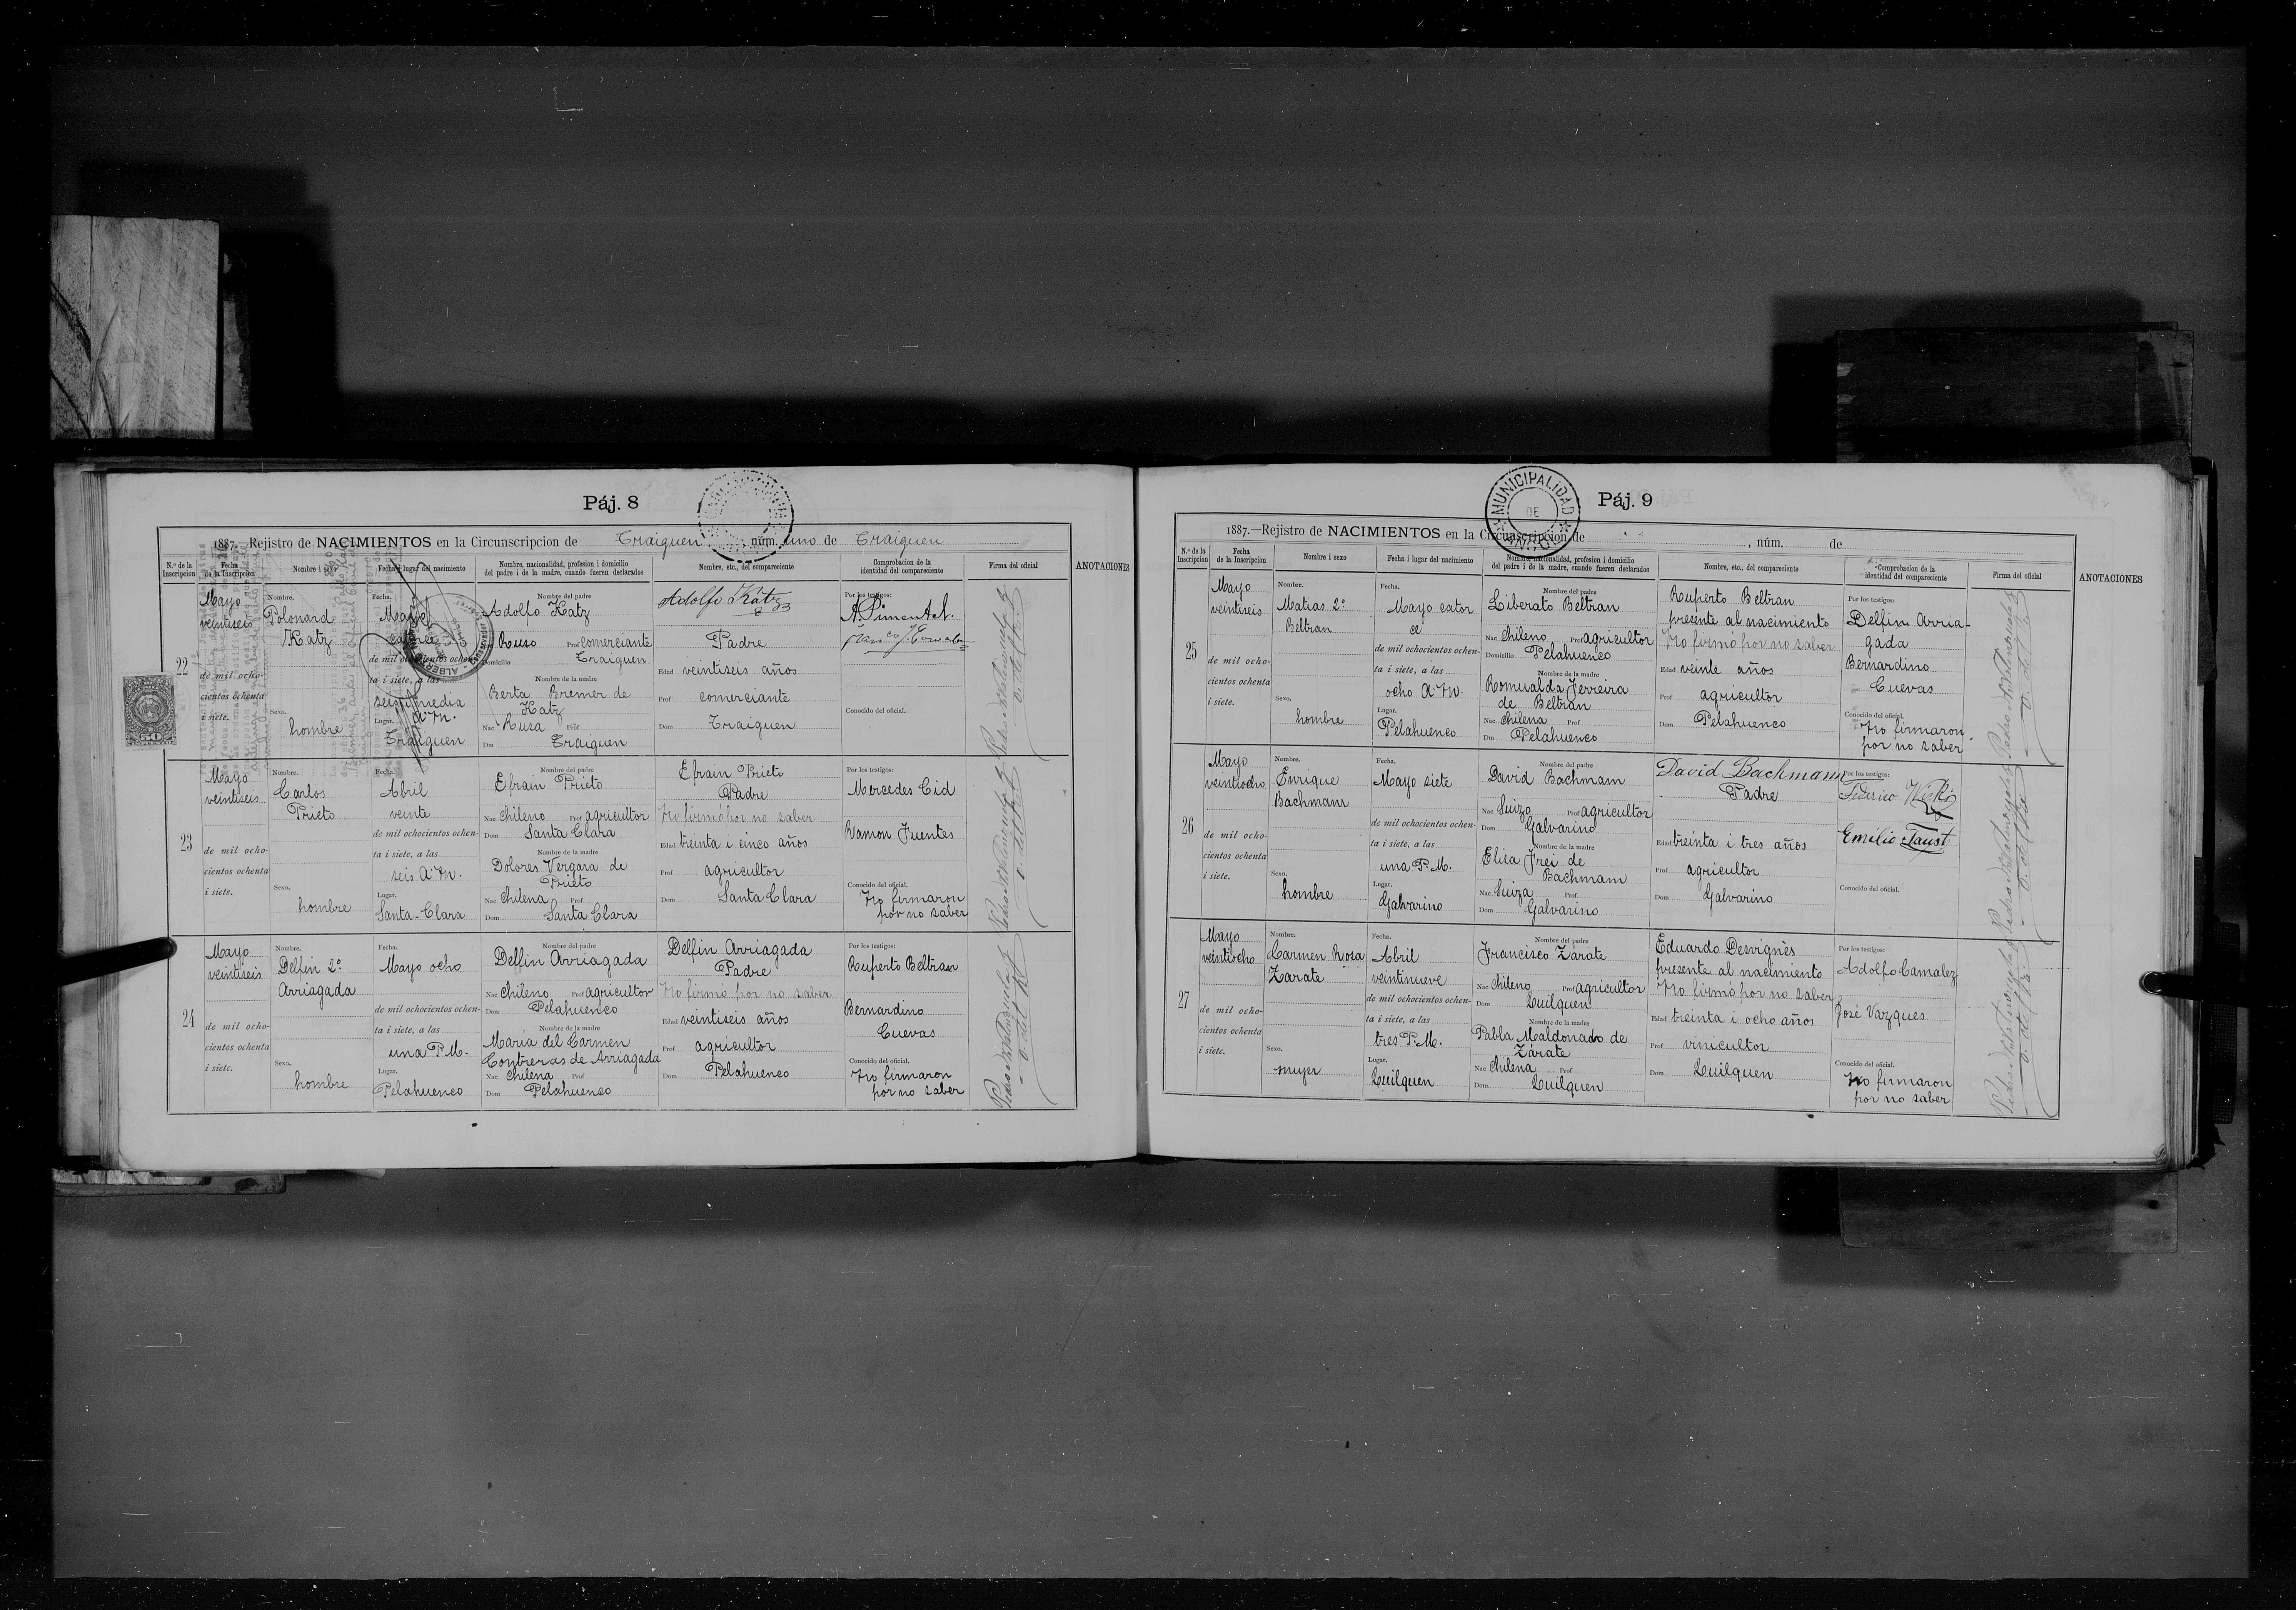 Páj. 8
1887.—Rejistro de NACIMIENTOS en la Circunscripcion de Traiguen, núm. uno de Traiguen
N.º de la Inscripcion
Fecha de la Inscripcion
Nombre i sexo
Fecha i lugar del nacimiento
Nombre, nacionalidad, profesion i domicilio del padre i de la madre, cuando fueren declarados
Nombre, etc., del compareciente
Comprobacion de la identidad del compareciente
Firma del oficial
ANOTACIONES
22
Mayo
veintiseis
de mil ocho-
cientos ochenta
i siete.
Nombre.
Polonard
Katz
Sexo.
hombre
Fecha.
Mayo
catorce
de mil ochocientos ochen-
ta i siete, a las
seis i media
A.M.
Lugar.
Traiguen
Nombre del padre
Adolfo Katz
Nac Ruso Prof comerciante
Domicilio Traiguen
Nombre de la madre
Berta Bremer de
Katz
Nac Rusa Prof
Dm Traiguen
Adolfo Katz
Padre
Edad veintiseis años
Prof comerciante
Dom Traiguen
Por los testigos:
A. Pimentel.
Conocido del oficial.
23
Mayo
veintiseis
de mil ocho-
cientos ochenta
i siete.
Nombre.
Carlos
Prieto
Sexo.
hombre
Fecha.
Abril
veinte
de mil ochocientos ochen-
ta i siete, a las
seis A.M.
Lugar.
Santa-Clara
Nombre del padre
Efrain Prieto
Nac chileno Prof agricultor
Dom Santa Clara
Nombre de la madre
Dolores Vergara de
Prieto
Nac chilena Prof
Dom Santa Clara
Efrain Prieto
Padre
No firmó por no saber
Edad treinta i cinco años
Prof agricultor
Dom Santa Clara
Por los testigos:
Mercedes Cid
Ramon Fuentes
Conocido del oficial.
No firmaron
por no saber
24
Mayo
veintiseis
de mil ocho-
cientos ochenta
i siete.
Nombre.
Delfin 2º
Arriagada
Sexo.
hombre
Fecha.
Mayo ocho
de mil ochocientos ochen-
ta i siete, a las
una P.M.
Lugar.
Pelahuenco
Nombre del padre
Delfin Arriagada
Nac chileno Prof agricultor
Dom Pelahuenco
Nombre de la madre
María del Carmen
Contreras de Arriagada
Nac chilena Prof
Dom Pelahuenco
Delfin Arriagada
Padre
No firmó por no saber
Edad veintiseis años
Prof agricultor
Dom Pelahuenco
Por los testigos:
Ruperto Beltran
Bernardino
Cuevas
Conocido del oficial.
No firmaron
por no saber
Páj. 9
MUNICIPALIDAD
DE
1887.—Rejistro de NACIMIENTOS en la Circunscripcion de , núm. de
N.º de la Inscripcion
Fecha de la Inscripcion
Nombre i sexo
Fecha i lugar del nacimiento
Nombre, nacionalidad, profesion i domicilio del padre i de la madre, cuando fueren declarados
Nombre, etc., del compareciente
Comprobacion de la identidad del compareciente
Firma del oficial
ANOTACIONES
25
Mayo
veintiseis
de mil ocho-
cientos ochenta
i siete.
Nombre.
Matias 2º
Beltran
Sexo.
hombre
Fecha.
Mayo cator
ce
de mil ochocientos ochen-
ta i siete, a las
ocho A.M.
Lugar.
Pelahuenco
Nombre del padre
Liberato Beltran
Nac chileno Prof agricultor
Domicilio Pelahuenco
Nombre de la madre
Romualda Ferreira
de Beltran
Nac chilena Prof
Dm Pelahuenco
Ruperto Beltran
presente al nacimiento
No firmó por no saber
Edad veinte años
Prof agricultor
Dom Pelahuenco
Por los testigos:
Delfin Arria-
gada
Bernardino
Cuevas
Conocido del oficial.
No firmaron
por no saber
26
Mayo
veintiocho
de mil ocho-
cientos ochenta
i siete.
Nombre.
Enrique
Bachmann
Sexo.
hombre
Fecha.
Mayo siete
de mil ochocientos ochen-
ta i siete, a las
una P.M.
Lugar.
Galvarino
Nombre del padre
David Bachmann
Nac Suizo Prof agricultor
Dom Galvarino
Nombre de la madre
Elisa Frei de
Bachmann
Nac Suiza Prof
Dom Galvarino
David Bachmann
Padre
Edad treinta i tres años
Prof agricultor
Dom Galvarino
Por los testigos:
Federico
Emilio Faust
Conocido del oficial.
27
Mayo
veintiocho
de mil ocho-
cientos ochenta
i siete.
Nombre.
Carmen Rosa
Zárate
Sexo.
mujer
Fecha.
Abril
veintinueve
de mil ochocientos ochen-
ta i siete, a las
tres P.M.
Lugar.
Quilquen
Nombre del padre
Francisco Zárate
Nac chileno Prof agricultor
Dom Quilquen
Nombre de la madre
Pabla Maldonado de
Zárate
Nac chilena Prof
Dom Quilquen
Eduardo Desvignès
presente al nacimiento
No firmó por no saber
Edad treinta i ocho años
Prof vinicultor
Dom Quilquen
Por los testigos:
Adolfo Camalez
José Vazques
Conocido del oficial.
No firmaron
por no saber